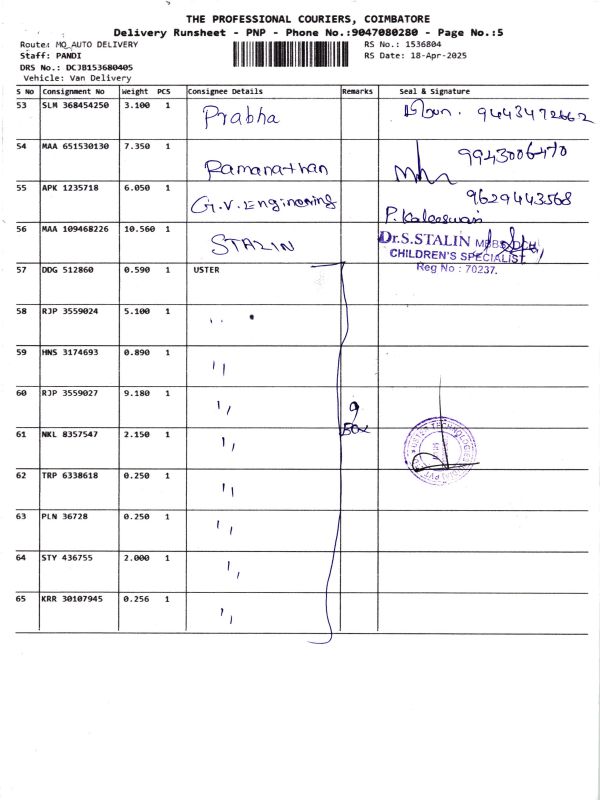 THE PROFESSIONAL COURIERS, COIMBATORE
Delivery Runsheet - PNP - Phone No.:9047080280 - Page No.:5
Route: MQ_AUTO DELIVERY RS No.: 1536804
Staff: PANDI RS Date: 18-Apr-2025
DRS No.: DCJB153680405
Vehicle: Van Delivery
S No Consignment No Weight PCS Consignee Details Remarks Seal & Signature
53 SLM 368454250 3.100 1 Prabha 9443472662
54 MAA 651530130 7.350 1 Ramanathan 9943006470
55 APK 1235718 6.050 1 G.V. Enginerring 9629443568
P. Kaleeswari
56 MAA 109468226 10.560 1 STALIN Dr.S.STALIN MBBS., DCH,
CHILDREN'S SPECIALIST
Reg No : 70237.
57 DDG 512860 0.590 1 USTER
58 RJP 3559024 5.100 1 ,,
59 HNS 3174693 0.890 1 ,,
60 RJP 3559027 9.180 1 ,, 9
Box
61 NKL 8357547 2.150 1 ,,
62 TRP 6338618 0.250 1 ,,
63 PLN 36728 0.250 1 ,,
64 STY 436755 2.000 1 ,,
65 KRR 30107945 0.256 1 ,,